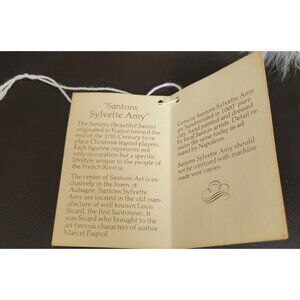 "Santons
Sylvette Amy"
The Santons (Beautiful Saints)
originated in France toward the
end of the 17th Century to re-
place Christmas legend players.
Each figurine represents not
only occupation but a specific
lifestyle unique to the people of
the French Riveria.
The center of Santons Art is ex-
clusively in the town of
Aubagne. Santons Sylvette
Amy are located in the old man-
ufacture of well known Louis
Sicard, the first Santonner. It
was Sicard who brought to the
art famous characters of author
Marcel Pagnol.
Genuine Santons Sylvette Amy
are handcrafted in 1000° Pure
clay, hand painted and dressed
by local Santon artists. Detail re-
mains the same today as ad
mired by Napoleon.
Santons Sylvette Amy should
not be confused with machine
made wire copies.